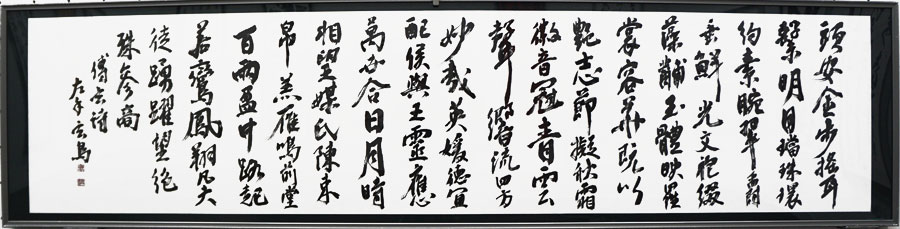 頭安金步搖耳
繫明月璫珠環
約素腕翠爵
垂鮮光文袍綴
藻黼玉體映羅
裳容華既以
艷志節擬秋霜
徽音冠青雲
聲響流四方
妙哉英媛德宜
配侯與王靈應
萬世合日月時
相望媒氏陳束
帛羔雁鳴前堂
百兩盈中路起
若鸞鳳翔凡夫
徒踴躍望絕
殊參商
傅玄詩